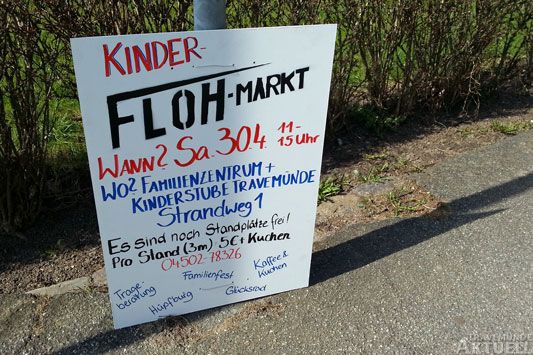 KINDER-
FLOH-MARKT
WANN? SA. 30.4. 11-15 UHR
WO? FAMILIENZENTRUM +
KINDERSTUBE TRAVEMÜNDE
STRANDWEG 1
Es sind noch Standplätze frei!
Pro Stand (3m) 5€ + Kuchen
04502-78326
Familienfest
Kaffee &
Kuchen
Trage
beratung
Hüpfburg
Glücksrad
TRAVEMÜNDE
AKTUELL